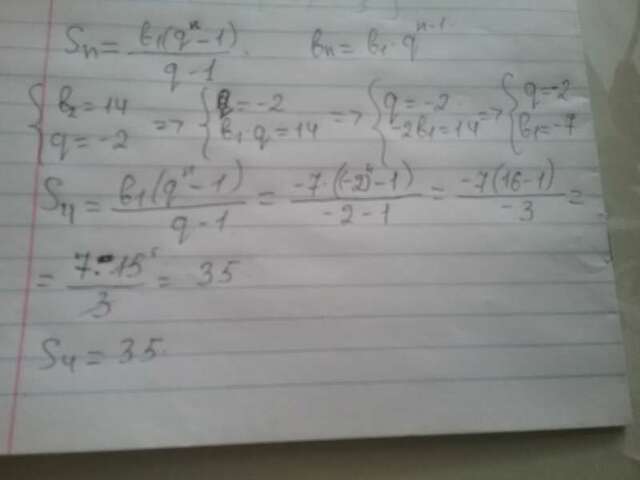 Sn = b₁(qⁿ-1)/q-1. bn = b₁·qⁿ⁻¹.
{b₂ = 14 q = -2 => {q = -2 b₁q = 14 => {q = -2 -2b₁ = 14 => {q = -2 b₁ = -7
S₄ = b₁(qⁿ-1)/q-1 = -7·(-2)⁴-1)/-2-1 = -7(16-1)/-3 =
= 7·15⁵/3 = 35
S₄ = 35.